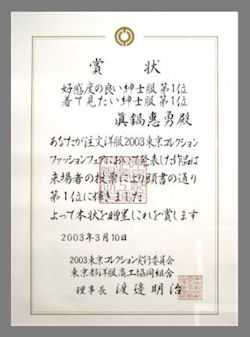 賞状
好感度の良い紳士服第1位
着て見たい紳士服第1位
眞鍋惠勇殿
あなたが注文洋服2003東京コレクション
ファッションフェアにおいて発表した作品は
来場者の投票により頭書の通り
第1位に輝きました
よって本状を贈呈しこれを賞します
2003年3月10日
2003東京コレクション実行委員会
東京都洋服商工協同組合
理事長 渡邊明治